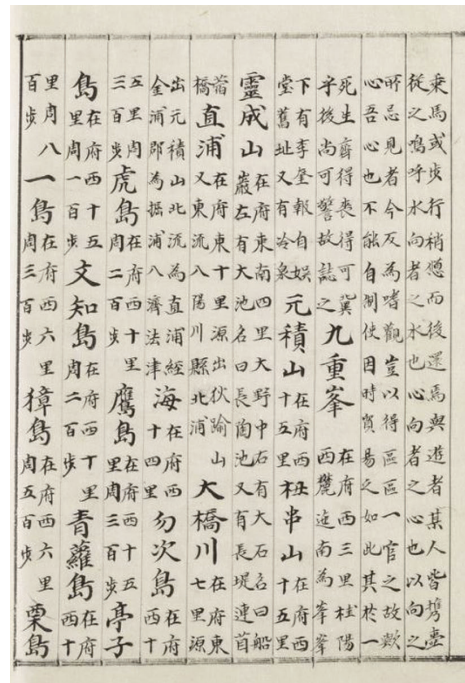 乘馬或步行稍憩而後還焉與遊者某人皆携壺
從之嗚呼水向者之水也心向者之心也以向之
所忌見者今反為嗜觀豈以得區區一官之故歟
心吾心也不能自制使因時貿易之如此其於一
死生齊得喪得可冀乎後尚可警故誌之九重峯在府西三里桂陽西麓迤南為峯峯
下有李奎報自娛堂舊址又有冷泉元積山在府西十五里杻串山在府西十五里
靈成山在府東南四里大野中石有大石名曰船巖左有大池名曰長蘭池又有長堤連苜
葍橋直浦在府東十里源出伙踰山又東流八陽川縣北浦大橋川在府東七里源
出元積山北流為直浦經金浦郡為掘浦八濟法津海在府西十四里勿次島在府西十
五里周三百步虎島在府西四十里周二百步鷹島在府西四十五里周三百步亭子
島在府西十五里周一百步文知島在府西丁里周二百步青蘿島在府西十
里周八百步一島在府西六里周三百步獐島在府西六里周五百步栗島